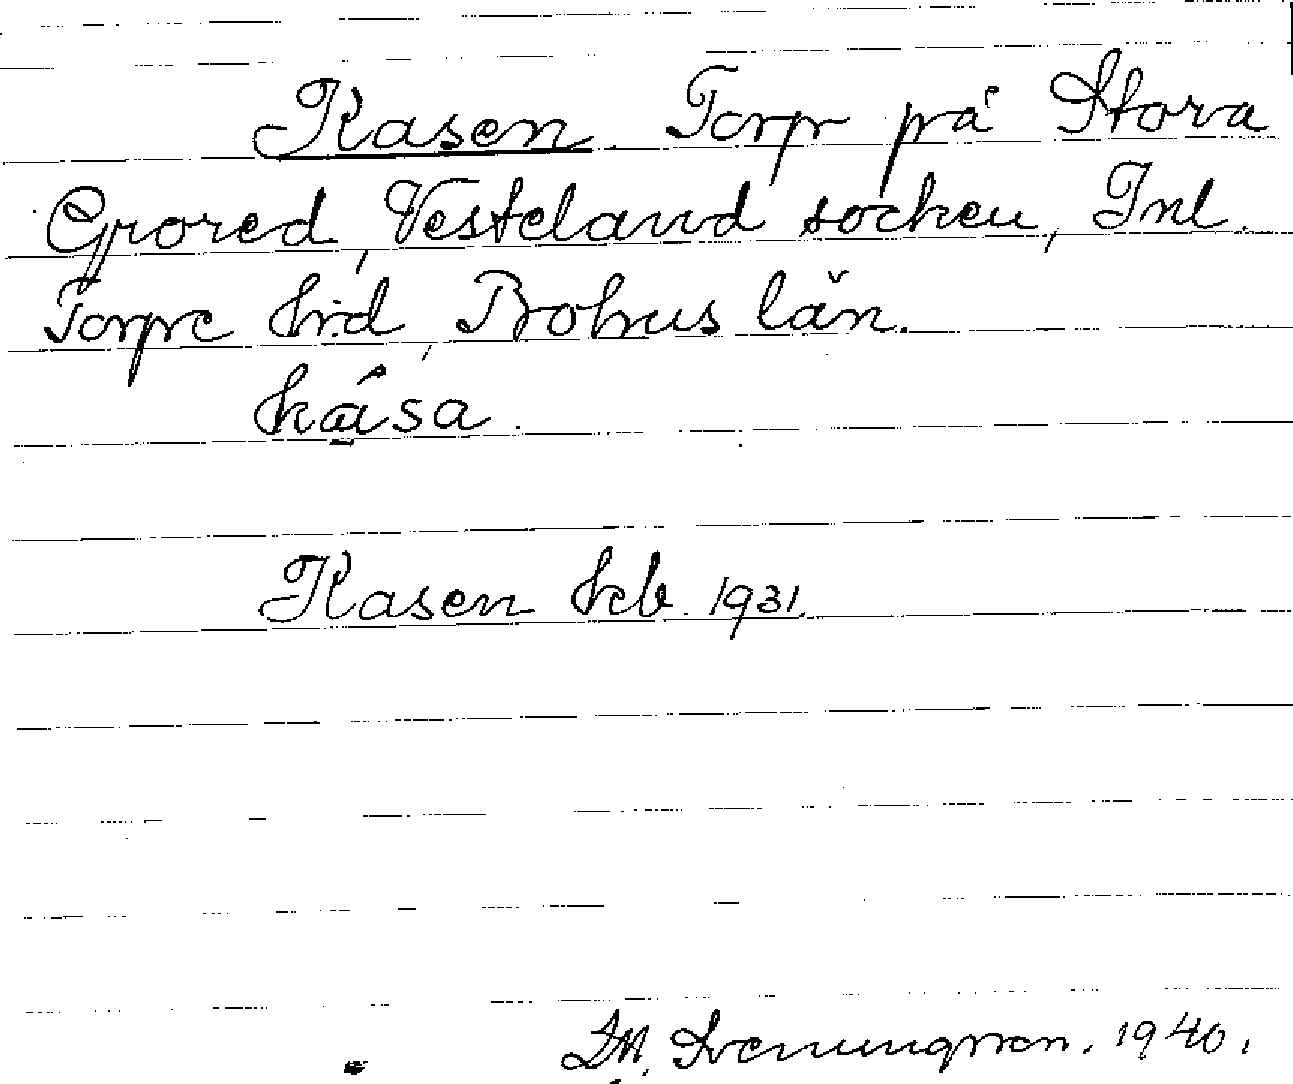 Kasen. Torp på Stora
Grored, Vesteland socken, Inl.
Torpe hrd, Bohus län.
kása.
Kasen kb. 1931.
M. Svenungsson. 1940.